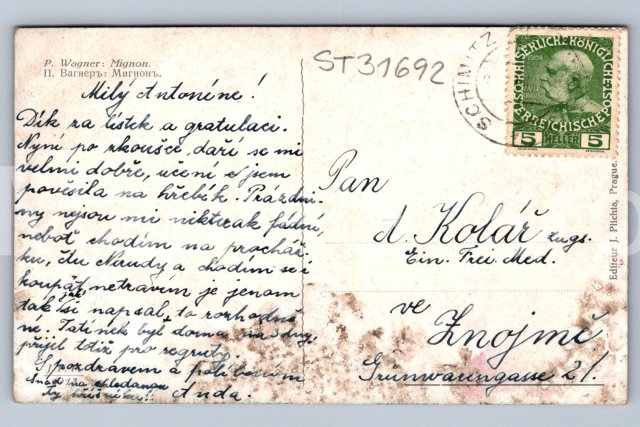 P. Wagner: Mignon.
П. Вагнеръ: Мигнонъ.
ST31692
Milý Antoníne!
Dík za lístek a gratulaci.
Nyní po zkoušce, daří se mi
velmi dobře, učení jsem
pověsila na hřebík. Prázdni-
ny nejsou mi nikterak fádní,
neboť chodím na procház-
ku, čtu Nerudy a chodím se i
koupat, netrávím je jenom
tak jak si napsal, to rozhodně
ne. Tatínek byl doma na 3 dny,
přijel totiž pro regruty.
S pozdravem a políbením
Anda.
SCHILTZ
KAISERLICHE KÖNIGLICHE
ÖSTERREICHISCHE
5 HELLER 5
Pan
A. Kolář zugs.
Ein. Frei. Med.
ve
Znojmě
Grünwaringasse 21.
Editeur J. Plichta, Prague.